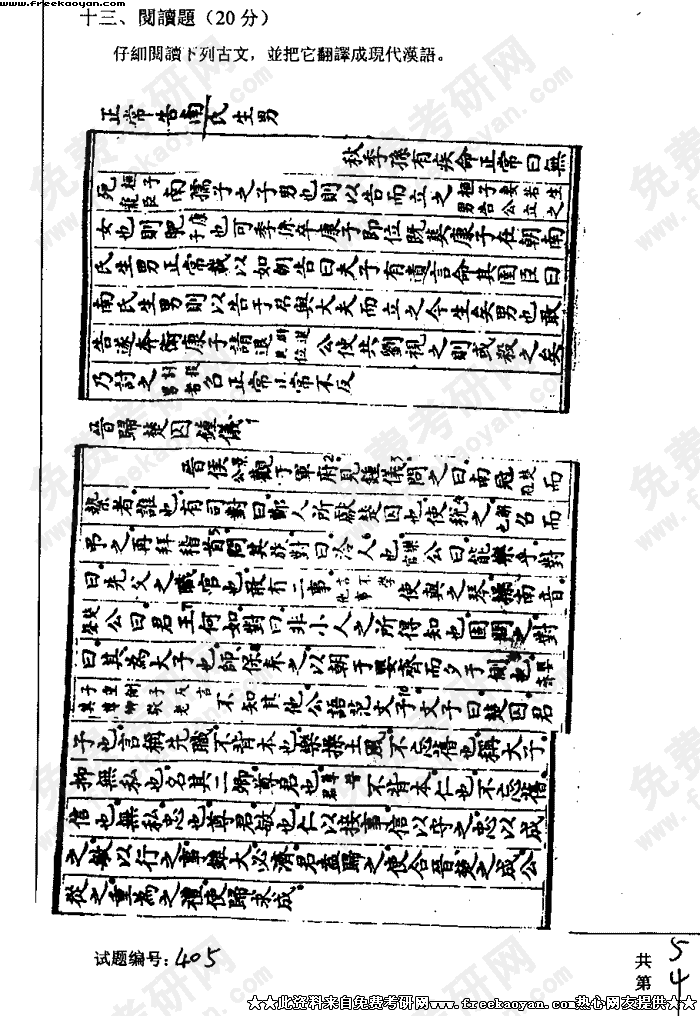 www.freekaoyan.com
十三、閱讀題（20 分）
仔細閱讀下列古文，並把它翻譯成現代漢語。
正常告南氏生男
秋季孫有疾命正常曰無
死桓子寵臣南孺子之子男也則以告而立之桓子妻若生男告公立之
女也則肥康子也可季孫卒康子即位既葬康子在朝南
氏生男正常載以如朝告曰夫子有遺言命其圉臣曰
南氏生男則以告于君與大夫而立之今生矣男也敢
告遂奔衛康子請退辟位退公使共劉視之則或殺之矣
乃討之討殺男者召正常正常不反
晉歸楚囚鍾儀
晉侯景公觀于軍府見鍾儀問之曰南冠楚冠而
縶者誰也有司對曰鄭人所獻楚囚也使稅之解也召而
弔之再拜稽首問其族對曰泠人也樂官公曰能樂乎對
曰先父之職官也敢有二事言不學他事使與之琴操南音
楚聲公曰君王何如對曰非小人之所得知也固問之對
曰其為大子也師保奉之以朝于嬰齊而夕于側也嬰齊
子重側子反言其尊卿敬老不知其他公語范文子文子曰楚囚君
子也言稱先職不背本也樂操土風不忘舊也稱大子
抑無私也名其二卿尊君也尊晉君不背本仁也不忘舊
信也無私忠也尊君敏也仁以接事信以守之忠以成
之敏以行之事雖大必濟君盍歸之使合晉楚之成公
從之重為之禮使歸求成
试题编号：405
共 5
第 4
★★此资料来自免费考研网www.freekaoyan.com热心网友提供★★